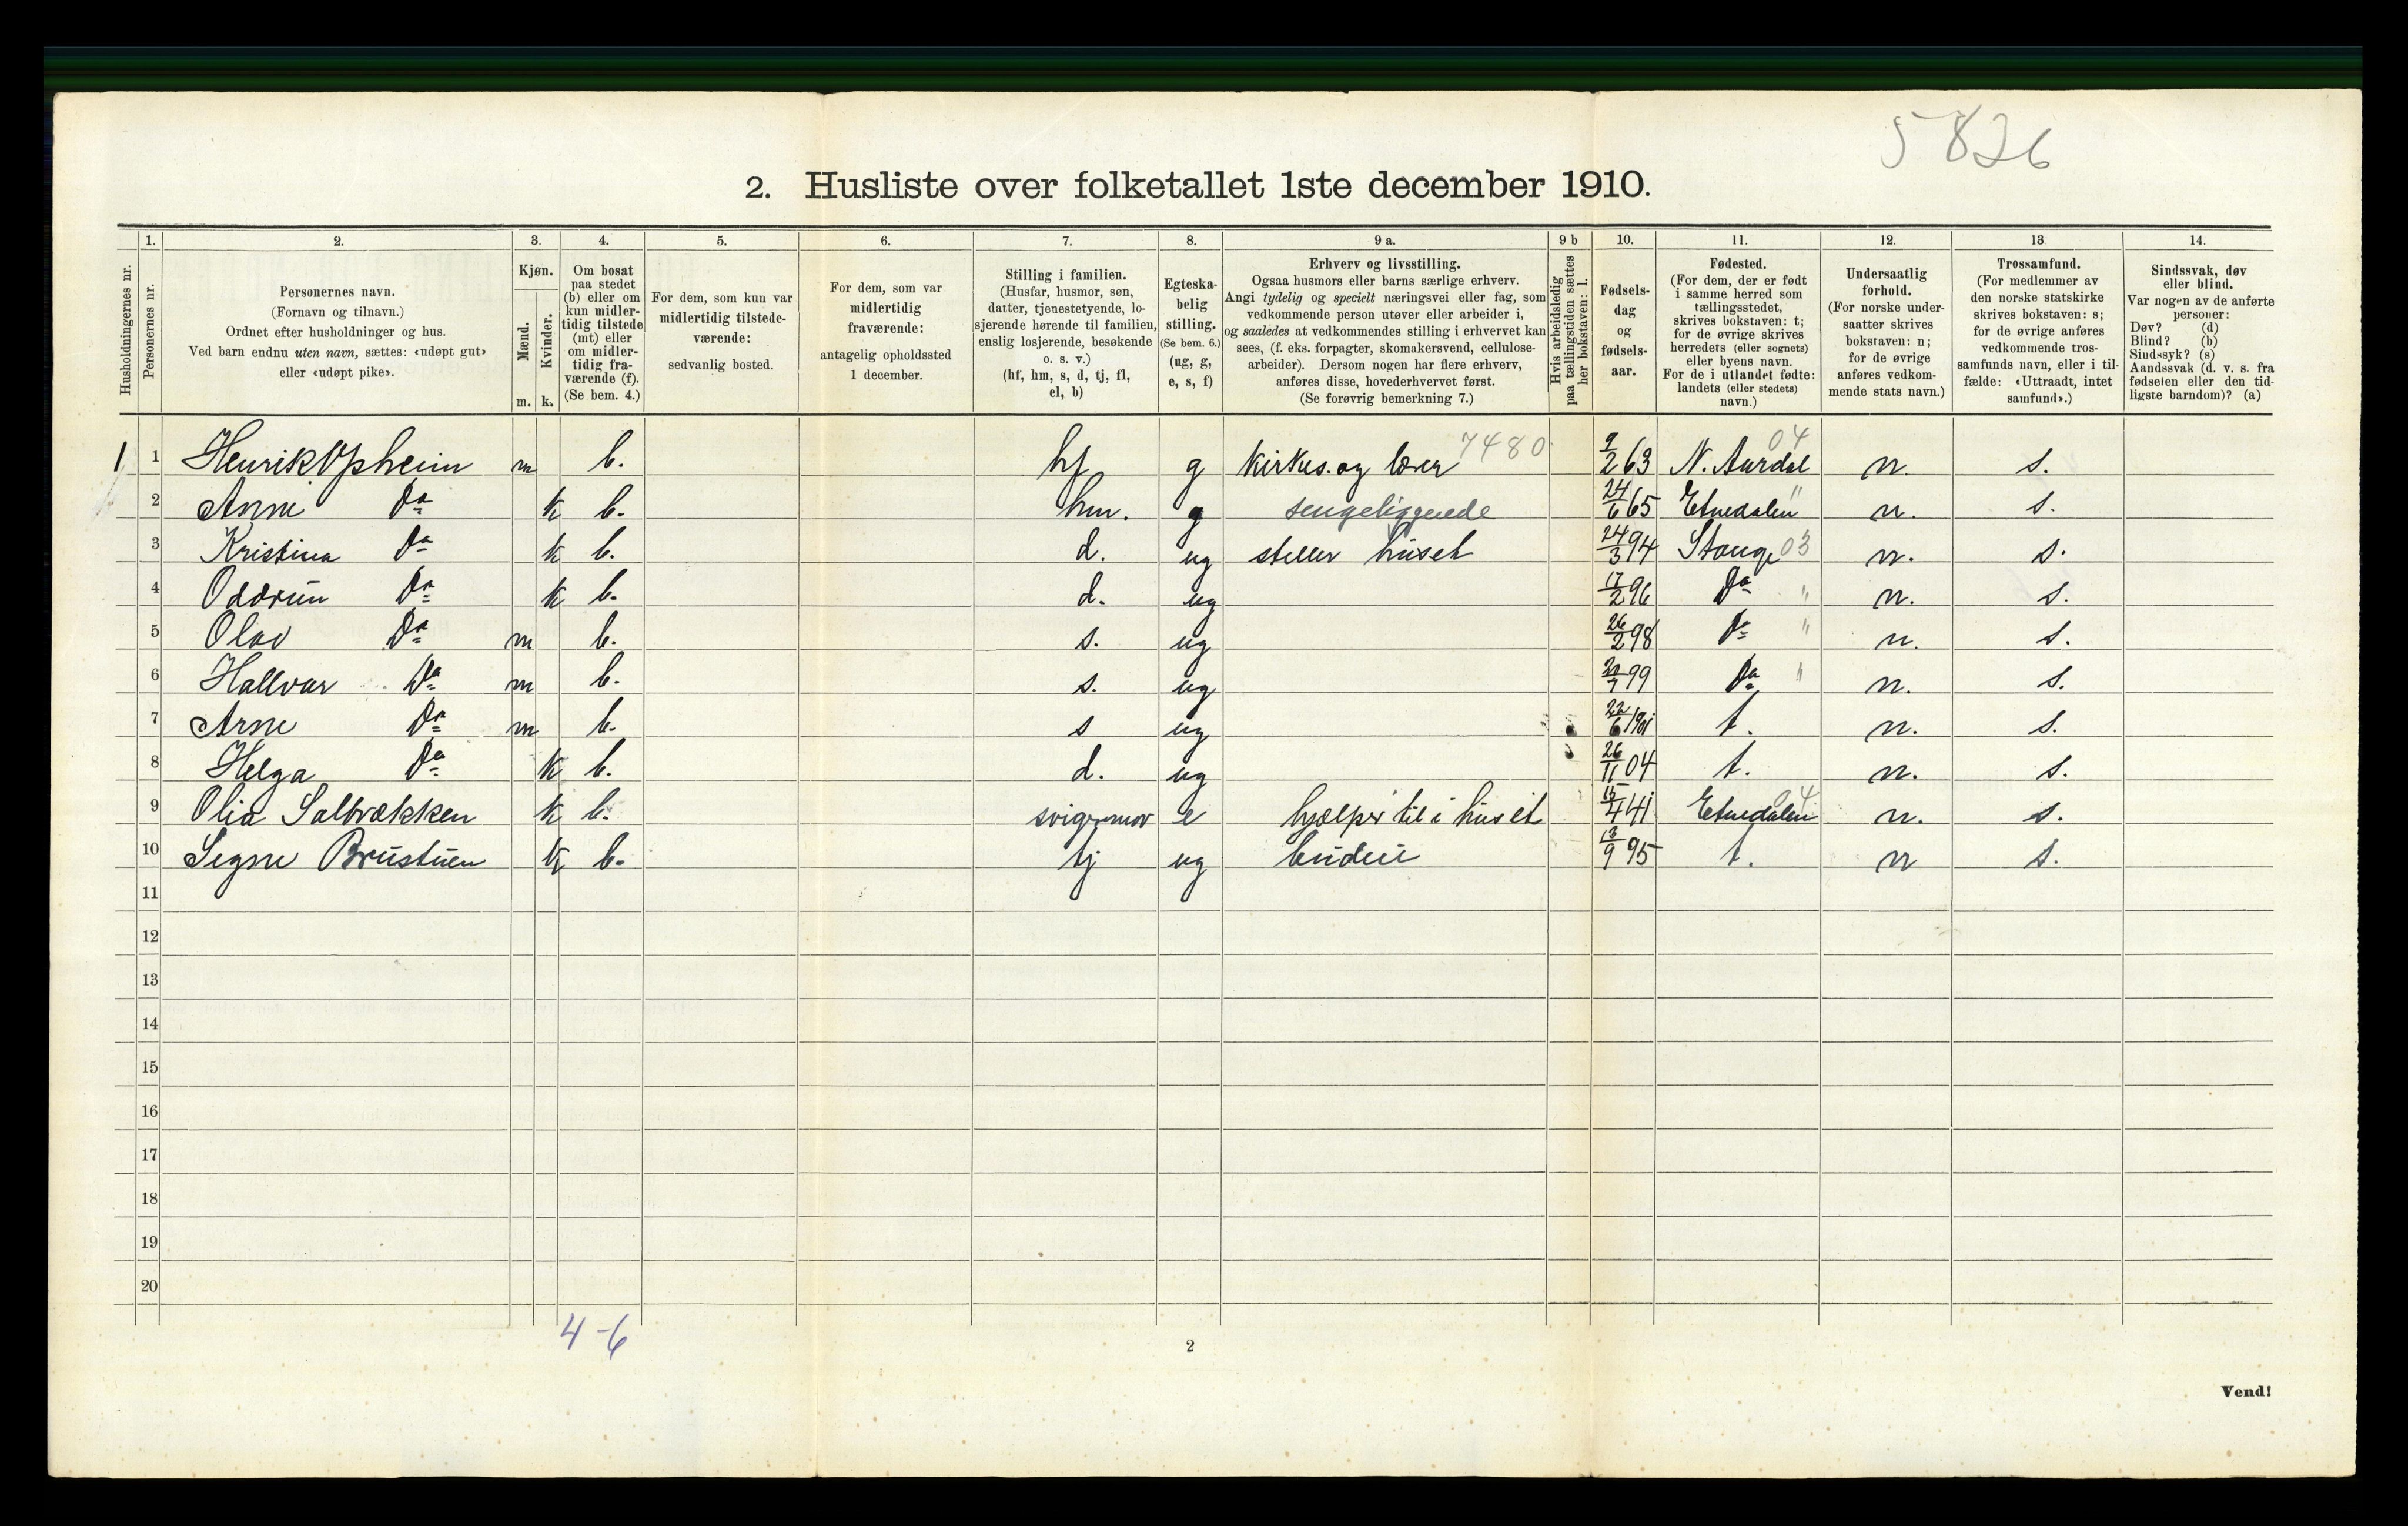 5826
2. Husliste over folketallet 1ste december 1910.
Husholdningernes nr.
1.
Personernes nr.
2.
Personernes navn.
(Fornavn og tilnavn.)
Ordnet efter husholdninger og hus.
Ved barn endnu uten navn, sættes: «udøpt gut»
eller «udøpt pike».
3.
Kjøn.
Mænd.
Kvinder.
m. k.
4.
Om bosat
paa stedet
(b) eller om
kun midler-
tidig tilstede
(mt) eller
om midler-
tidig fra-
værende (f).
(Se bem. 4.)
5.
For dem, som kun var
midlertidig tilstede-
værende:
sedvanlig bosted.
6.
For dem, som var
midlertidig
fraværende:
antagelig opholdssted
1 december.
7.
Stilling i familien.
(Husfar, husmor, søn,
datter, tjenestetyende, lo-
sjerende hørende til familien,
enslig losjerende, besøkende
o. s. v.)
(hf, hm, s, d, tj, fl,
el, b)
8.
Egteska-
belig
stilling.
(Se bem. 6.)
(ug, g,
e, s, f)
9 a.
Erhverv og livsstilling.
Ogsaa husmors eller barns særlige erhverv.
Angi tydelig og specielt næringsvei eller fag, som
vedkommende person utøver eller arbeider i,
og saaledes at vedkommendes stilling i erhvervet kan
sees, (f. eks. forpagter, skomakersvend, cellulose-
arbeider). Dersom nogen har flere erhverv,
anføres disse, hovederhvervet først.
(Se forøvrig bemerkning 7.)
9 b
Hvis arbeidsledig
paa tællingstiden sættes
her bokstaven: l.
10.
Fødsels-
dag
og
fødsels-
aar.
11.
Fødested.
(For dem, der er født
i samme herred som
tællingsstedet,
skrives bokstaven: t;
for de øvrige skrives
herredets (eller sognets)
eller byens navn.
For de i utlandet fødte:
landets (eller stedets)
navn.)
12.
Undersaatlig
forhold.
(For norske under-
saatter skrives
bokstaven: n;
for de øvrige
anføres vedkom-
mende stats navn.)
13
Trossamfund.
(For medlemmer av
den norske statskirke
skrives bokstaven: s;
for de øvrige anføres
vedkommende tros-
samfunds navn, eller i til-
fælde: «Uttraadt, intet
samfund».)
14.
Sindssvak, døv
eller blind.
Var nogen av de anførte
personer:
Døv? (d)
Blind? (b)
Sindssyk? (s)
Aandssvak (d. v. s. fra
fødselen eller den tid-
ligste barndom)? (a)
1 1 Henrik Opheim m b. hf g Kirkes. og lærer 7480 9/2 63 N. Aurdal 04 n. s.
2 Anne Do k b. hm. g sengeliggende 24/6 65 Etnedalen " n. s.
3 Kristina Do k b. d. ug steller huset 24/3 94 Stange 03 n. s.
4 Oddrun Do k b. d. ug 17/2 96 Do " n. s.
5 Olav Do m b. s. ug 26/2 98 Do " n. s.
6 Hallvar Do m b. s. ug 99 Do " n. s.
7 Arne Do m b. s ug 22/6 1901 t. n. s.
8 Helga Do k b. d. ug 26/11 04 t. n. s.
9 Olia Salbrækken k b. svigermor e hjælper til i huset 15/4 41 Etnedalen 04 n. s.
10 Signe Brustuen k b. tj ug budeie 13/9 95 t. n s.
11
12
13
14
15
16
17
18
19
20
4-6
2
Vend!